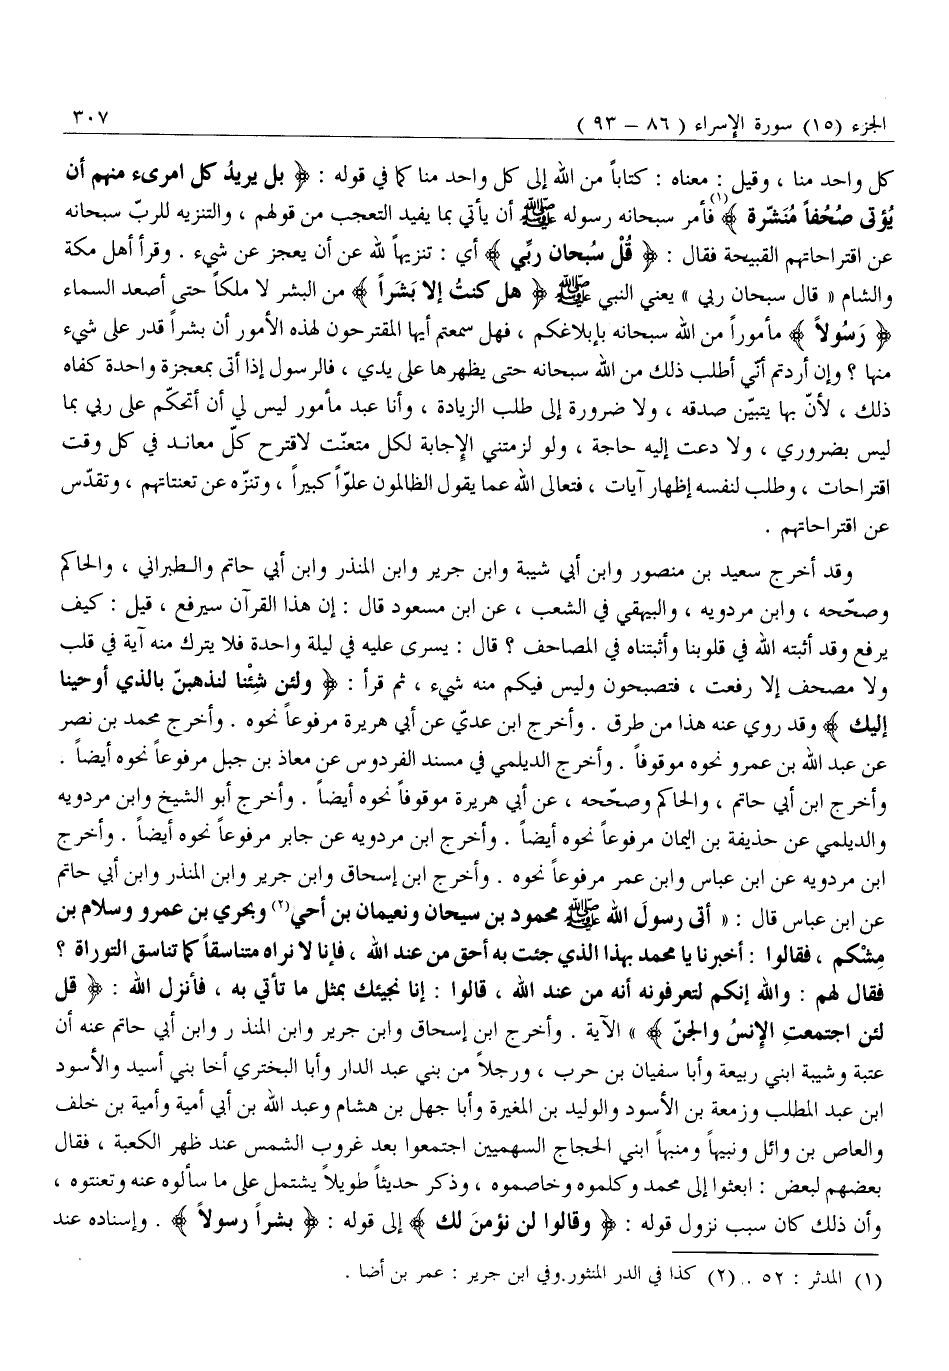 الجزء (١٥) سورة الإسراء ( ٨٦ – ٩٣ ) ٣٠٧
كل واحد منا ، وقيل : معناه : كتاباً من الله إلى كل واحد منا كما في قوله : ﴿ بل يريدُ كل امرىء منهم أن
يُؤتى صُحُفاً مُنَشّرة ﴾(١) فأمر سبحانه رسوله ﷺ أن يأتي بما يفيد التعجب من قولهم ، والتنزيه للربّ سبحانه
عن اقتراحاتهم القبيحة فقال : ﴿ قُلْ سُبحان ربِّي ﴾ أي : تنزيهاً لله عن أن يعجز عن شيء . وقرأ أهل مكة
والشام « قال سبحان ربي » يعني النبي ﷺ ﴿ هل كنتُ إلا بَشَراً ﴾ من البشر لا ملكاً حتى أصعد السماء
﴿ رَسُولاً ﴾ مأموراً من الله سبحانه بإبلاغكم ، فهل سمعتم أيها المقترحون لهذه الأمور أن بشراً قدر على شيء
منها ؟ وإن أردتم أنّي أطلب ذلك من الله سبحانه حتى يظهرها على يدي ، فالرسول إذا أتى بمعجزة واحدة كفاه
ذلك ، لأنّ بها يتبيّن صدقه ، ولا ضرورة إلى طلب الزيادة ، وأنا عبد مأمور ليس لي أن أتحكّم على ربي بما
ليس بضروري ، ولا دعت إليه حاجة ، ولو لزمتني الإجابة لكل متعنّت لاقترح كلّ معاند في كل وقت
اقتراحات ، وطلب لنفسه إظهار آيات ، فتعالى الله عما يقول الظالمون علوّاً كبيراً ، وتنزّه عن تعنتاتهم ، وتقدّس
عن اقتراحاتهم .
وقد أخرج سعيد بن منصور وابن أبي شيبة وابن جرير وابن المنذر وابن أبي حاتم والطبراني ، والحاكم
وصحّحه ، وابن مردويه ، والبيهقي في الشعب ، عن ابن مسعود قال : إن هذا القرآن سيرفع ، قيل : كيف
يرفع وقد أثبته الله في قلوبنا وأثبتناه في المصاحف ؟ قال : يسرى عليه في ليلة واحدة فلا يترك منه آية في قلب
ولا مصحف إلا رفعت ، فتصبحون وليس فيكم منه شيء ، ثم قرأ : ﴿ ولئن شِئْنا لنذهبنّ بالذي أوحينا
إليك ﴾ وقد روي عنه هذا من طرق . وأخرج ابن عديّ عن أبي هريرة مرفوعاً نحوه . وأخرج محمد بن نصر
عن عبد الله بن عمرو نحوه موقوفاً . وأخرج الديلمي في مسند الفردوس عن معاذ بن جبل مرفوعاً نحوه أيضاً .
وأخرج ابن أبي حاتم ، والحاكم وصحّحه ، عن أبي هريرة موقوفاً نحوه أيضاً . وأخرج أبو الشيخ وابن مردويه
والديلمي عن حذيفة بن اليمان مرفوعاً نحوه أيضاً . وأخرج ابن مردويه عن جابر مرفوعاً نحوه أيضاً . وأخرج
ابن مردويه عن ابن عباس وابن عمر مرفوعاً نحوه . وأخرج ابن إسحاق وابن جرير وابن المنذر وابن أبي حاتم
عن ابن عباس قال : « أتى رسولَ الله ﷺ محمود بن سيحان ونعيمان بن أحي(٢) وبحري بن عمرو وسلام بن
مِشْكم ، فقالوا : أخبرنا يا محمد بهذا الذي جئت به أحق من عند الله ، فإنا لا نراه متناسقاً كما تناسق التوراة ؟
فقال لهم : والله إنكم لتعرفونه أنه من عند الله ، قالوا : إنا نجيئك بمثل ما تأتي به ، فأنزل الله : ﴿ قل
لئن اجتمعتِ الإنسُ والجنّ ﴾ » الآية . وأخرج ابن إسحاق وابن جرير وابن المنذر وابن أبي حاتم عنه أن
عتبة وشيبة ابني ربيعة وأبا سفيان بن حرب ، ورجلاً من بني عبد الدار وأبا البختري أخا بني أسيد والأسود
ابن عبد المطلب وزمعة بن الأسود والوليد بن المغيرة وأبا جهل بن هشام وعبد الله بن أبي أمية وأمية بن خلف
والعاص بن وائل ونبيهاً ومنبهاً ابني الحجاج السهميين اجتمعوا بعد غروب الشمس عند ظهر الكعبة ، فقال
بعضهم لبعض : ابعثوا إلى محمد وكلموه وخاصموه ، وذكر حديثاً طويلاً يشتمل على ما سألوه عنه وتعنتوه ،
وأن ذلك كان سبب نزول قوله : ﴿ وقالوا لن نؤمنَ لك ﴾ إلى قوله : ﴿ بشراً رسولاً ﴾ . وإسناده عند
(١) المدثر : ٥٢ . (٢) كذا في الدر المنثور.وفي ابن جرير : عمر بن أضا .